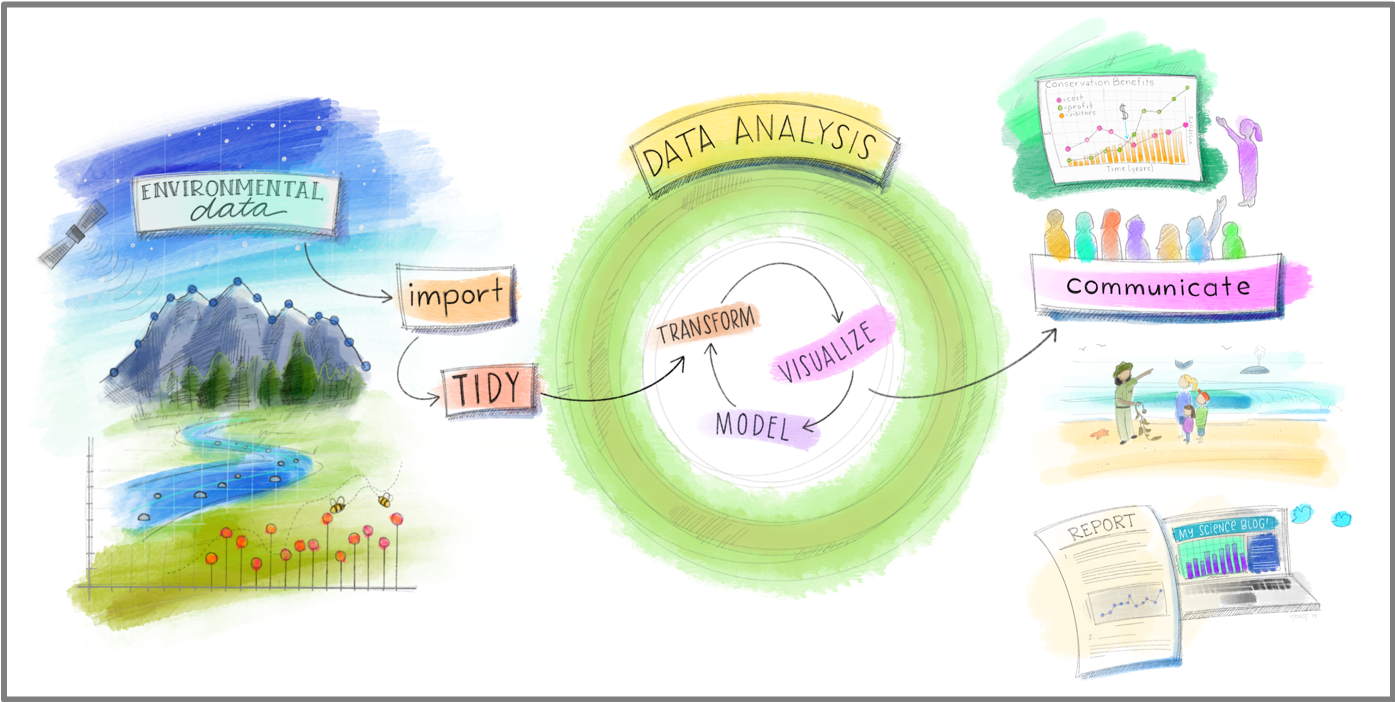 ENVIRONMENTAL
data
import
TIDY
DATA ANALYSIS
TRANSFORM
VISUALIZE
MODEL
Conservation Benefits
=cost
=profit
=visitors
$
Time (years)
communicate
REPORT
1.
2.
MY SCIENCE BLOG!